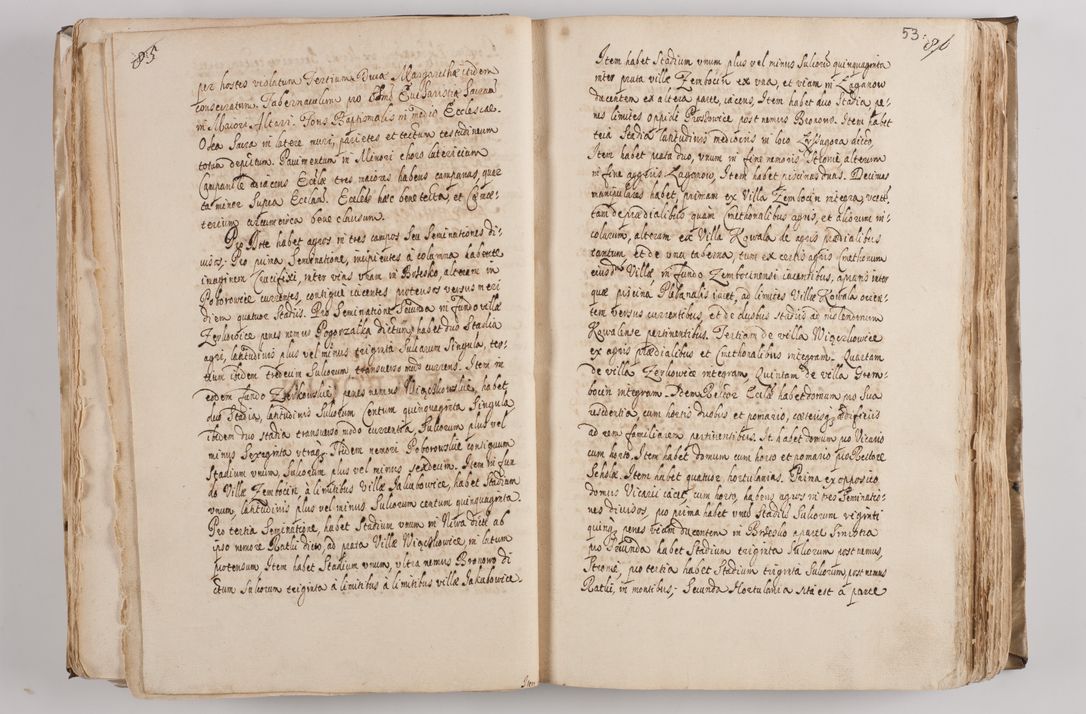 85
per hostes violatum Tertium Divæ Margarethæ ibidem
consecratum. Tabernaculum pro Eucharistia Sacra
in Maiori Altari. Fons Baptismalis in medio Ecclesiæ.
Olea Sacra in latere muri, parietes et tectum testudineum
totum depictum. Pavimentum in Minori choro latericium
Campanile adiacens Ecclæ tres maiores habens campanas, quar
ta minor supra Ecclam. Ecclesia hæc bene tecta, et Cæme-
terium circumcirca bene clausum.
Pro Dote habet agros in tres campos seu seminationes di-
visos. Pro prima seminatione, incipientes à columna habente
imaginem Crucifixi, inter vias unam in Brzesko, alteram in
Poborowice currentes, contigue iacentes protensos versus meri
diem quatuor Stadiis. Pro Seminatione Secunda in fundo villæ
Zerkowice penes nemus Pogorzalka dictum habet duo Stadia
agri, latitudinis plus vel minus triginta Sulcorum Singula, ter-
tium ibidem tredecim Sulcorum transverso modo currens. Item in
eodem fundo penes nemus habet
duo Stadia, latitudinis Sulcorum Centum quinquaginta Singula
ibidem duo stadia transverso modo currentia, Sulcorum plus vel
minus Sexaginta utraque. Ibidem nemori Poborowskie contiguum
Stadium unum, Sulcorum plus vel minus sexdecim. Item in fun
do Villæ Zembocin à limitibus Villæ Jakubowice, habet Stadium
unum, latitudinis plus vel minus Sulcorum centum quinquaginta.
Pro tertia Seminatione, habet Stadium unum in Niwa dicta ab
ipso nemore dicto, ad prata Villæ in latum
protensum Item habet Stadium unum, ultra nemus Bronowo di
ctum Sulcorum triginta à limitibus à limitibus villæ Jakubowice.
Item
53. 86
Item habet Stadium unum plus vel minus Sulcorum quinquaginta
inter prata villæ Zembocin ex una, et viam in Łaganow
ducentem ex altera parte, iacens, Item habet duo Stadia pe-
nes limites oppidi Proszowice post nemus Bronowo. Item habet
tria Stadia latitudinis mediocris in loco dicto,
Item habet prata duo, unum in fine nemoris Stronie alterum
in fine aggeris Łaganow, Item habet piscinas duas. Decimas
manipulares habet, primam ex Villa Zembocin integra,
tam de prædialibus quam Cmethonalibus agris, et aliorum in-
colarum, alteram ex Villa Kowala de agris prædialibus
tantum et de una taberna, tum ex certis agris Cmethonum
eiusdem Villæ in fundo Zembocinensi iacentibus, agrario inter
quæ piscina Plebanalis iacet, ad limites Villæ Kowala orien-
tem versus currentibus, et de duobus stadiis ad molentinum
Kowalense pertinentibus. Tertiam de villa
ex agris prædialibus et Cmethonalibus integram. Quartam
de villa Zerkowice integram, Quintam de villa Grem-
bocin integram. Item Rector Ecclæ habet domum pro Sua
residentia, cum hortis duobus et pomario, cæterisque ædificiis
ad rem familiarem pertinentibus. It. habet domum pro Vicario
cum horto. Item habet domum cum horto et pomario pro Rectore
Scholæ. Item habet quatuor hortulanias. Prima ex opposito
domus Vicarii iacet, cum horto, habens agros in tres Seminatio-
nes divisos, pro prima habet unum Stadium Sulcorum viginti
quinque penes viam ducentem in Brzesko a parte Sinistra
pro Secunda habet Stadium triginta Sulcorum post nemus,
Stronie, pro tertia habet Stadium triginta Sulcorum, post nemus
in montibus. Secunda Hortulania sita est a parte